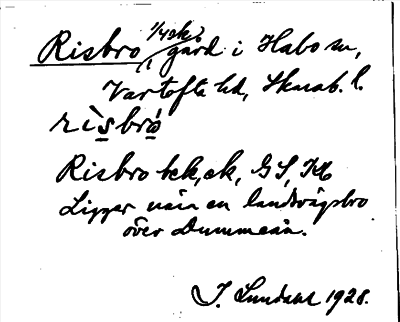 Risbro, 1/4 sk. gård i Habo sn,
Vartofta hd, Skarab. l.
rìsbró
Risbro bck, ek, GS, JK
Ligger nära en landsvägsbro
över Dummeån.
I. Lundahl 1928.